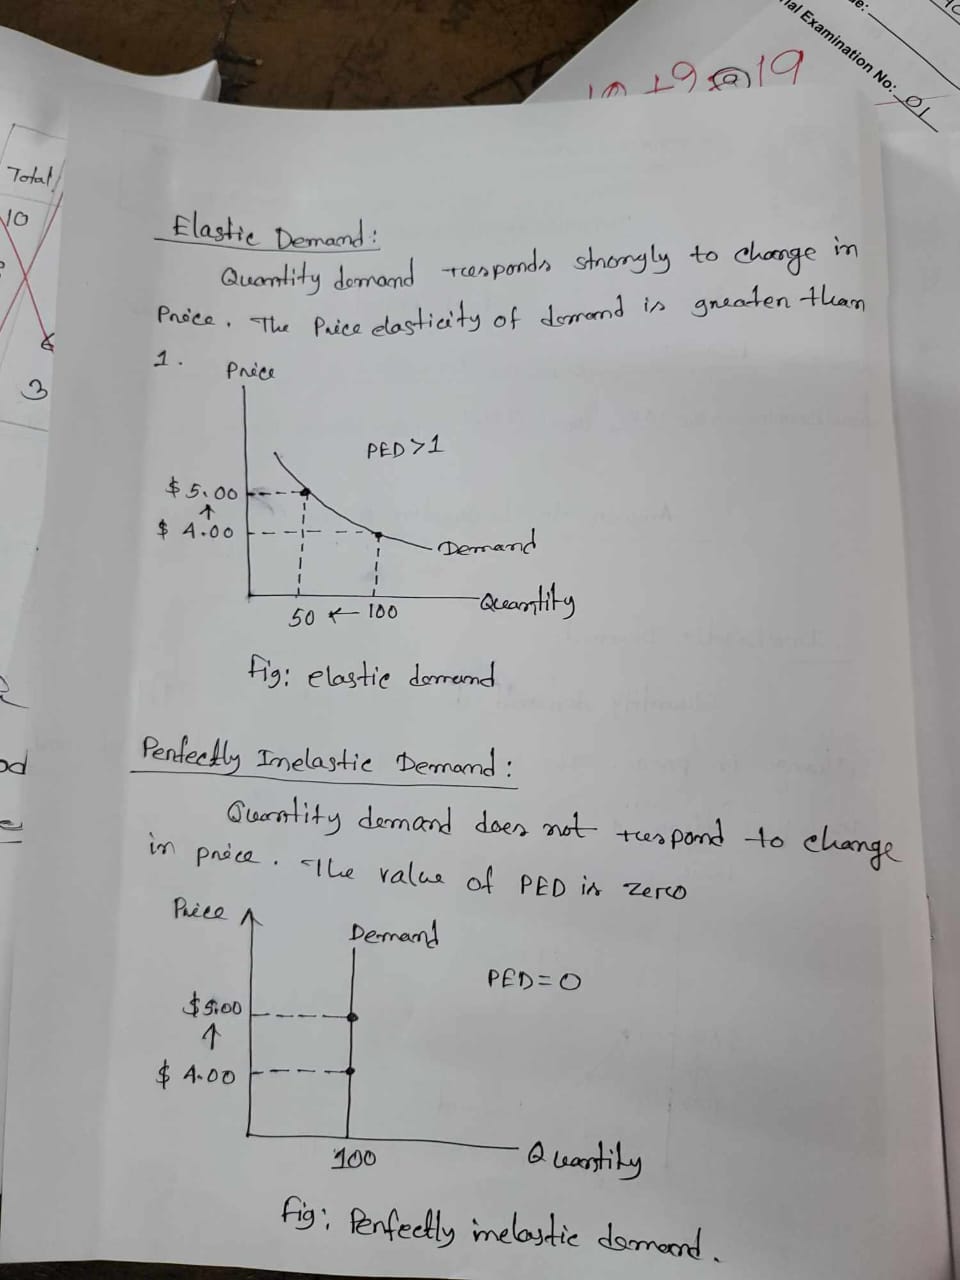 ial Examination No: 01
10 + 9 = 19
Total
10
3
Elastic Demand:
Quantity demand responds strongly to change in
Price. The Price elasticity of demand is greater than
1.
Price
PED > 1
$ 5.00
↑
$ 4.00
Demand
50 ← 100
Quantity
fig: elastic demand
Perfectly Inelastic Demand:
Quantity demand does not respond to change
in price. The value of PED is zero
Price
Demand
PED = 0
$5.00
↑
$ 4.00
100
Quantity
fig: Perfectly inelastic demand.